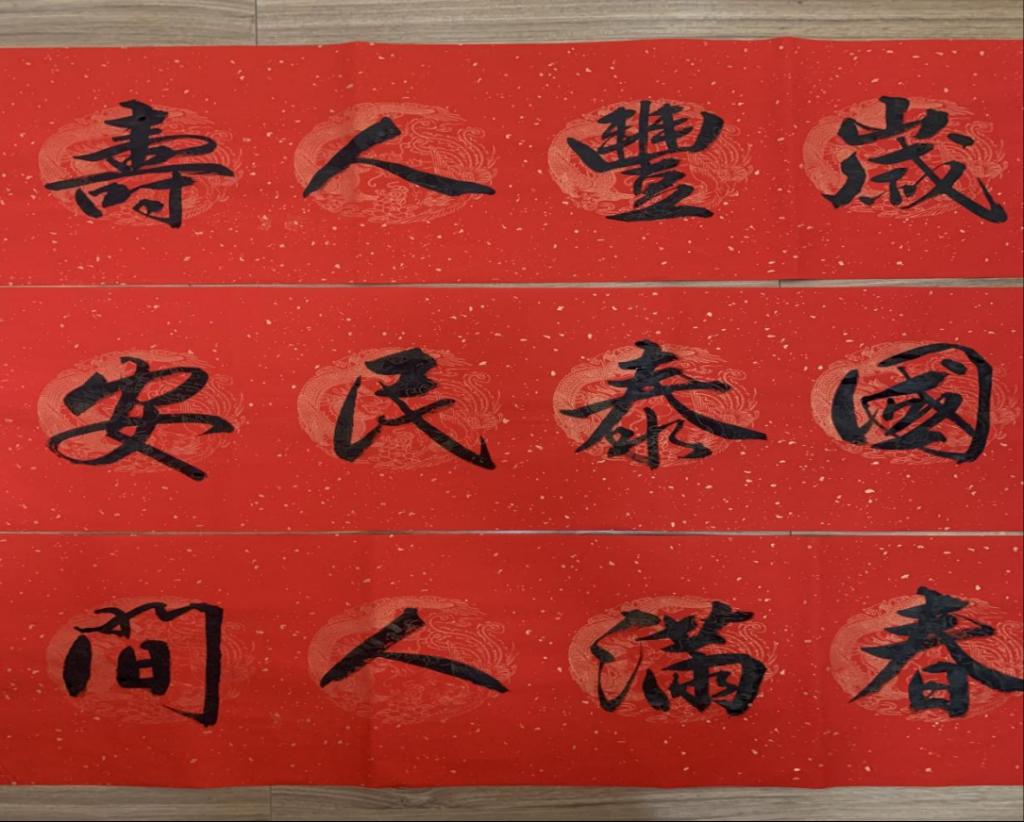 歲豐人壽
國泰民安
春滿人間